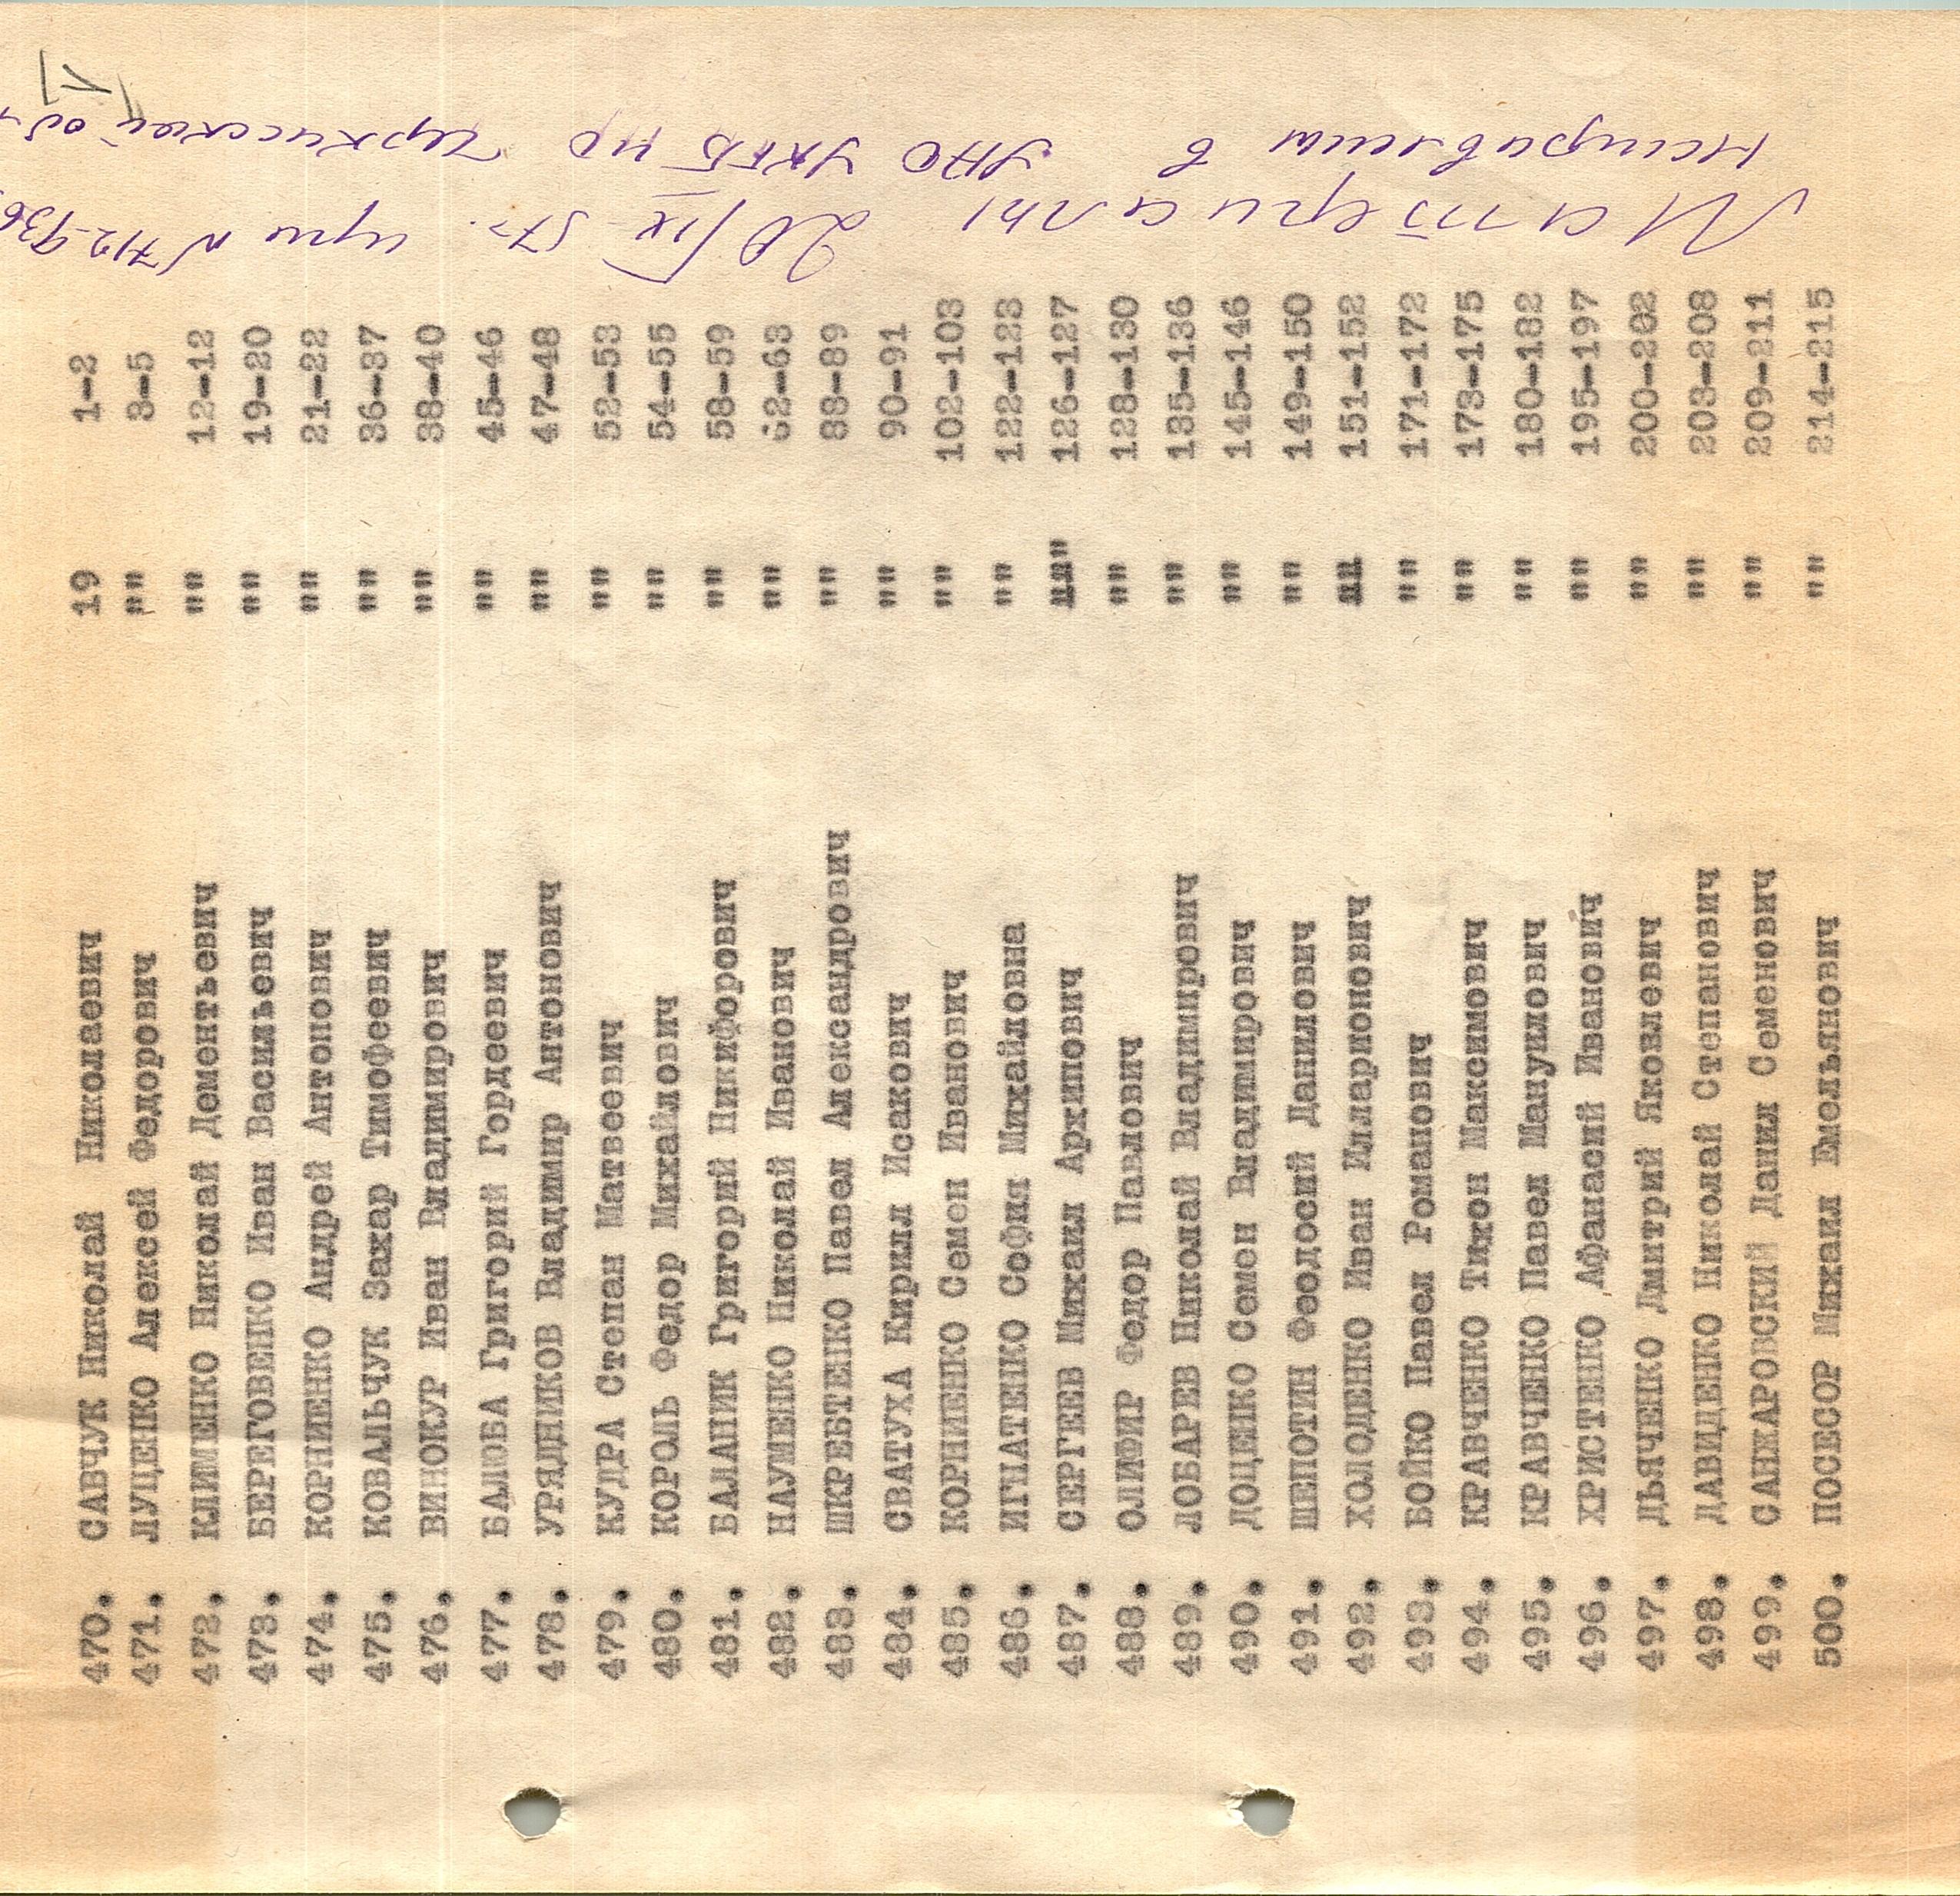 470. САВЧУК Николай Николаевич 19 1-2
471. ЛУЦЕНКО Алексей Федорович "" 3-5
472. КЛИМЕНКО Николай Дементьевич "" 12-12
473. БЕРЕГОВЕНКО Иван Васильевич "" 19-20
474. КОРНИЕНКО Андрей Антонович "" 21-22
475. КОВАЛЬЧУК Захар Тимофеевич "" 36-37
476. ВИНОКУР Иван Владимирович "" 38-40
477. БАЛЮБА Григорий Гордеевич "" 45-46
478. УРЯДНИКОВ Владимир Антонович "" 47-48
479. КУДРА Степан Матвеевич "" 52-53
480. КОРОЛЬ Федор Михайлович "" 54-55
481. БАЛАНИК Григорий Никифорович "" 58-59
482. НАУМЕНКО Николай Иванович "" 62-63
483. ШКРЕБТЕНКО Павел Александрович "" 88-89
484. СВАТУХА Кирилл Исакович "" 90-91
485. КОРНИЕНКО Семен Иванович "" 102-103
486. ИГНАТЕНКО София Михайловна "" 122-123
487. СЕРГЕЕВ Михаил Архипович """ 126-127
488. ОЛИФИР Федор Павлович "" 128-130
489. ЛОБАРЕВ Николай Владимирович "" 135-136
490. ДОЦЕНКО Семен Владимирович "" 145-146
491. ШЕПОТИН Феодосий Данилович "" 149-150
492. ХОЛОДЕНКО Иван Илларионович "" 151-152
493. БОЙКО Павел Романович "" 171-172
494. КРАВЧЕНКО Тихон Максимович "" 173-175
495. КРАВЧЕНКО Павел Мануилович "" 180-182
496. ХРИСТЕНКО Афанасий Иванович "" 195-197
497. ДЬЯЧЕНКО Дмитрий Яковлевич "" 200-202
498. ДАВИДЕНКО Николай Степанович "" 203-208
499. САНЖАРОВСКИЙ Данил Семенович "" 209-211
500. ПОСЕССОР Михаил Емельянович "" 214-215
Материалы 20/IX-57г. при №
направлены в УАО УКГБ по Черкасской обл